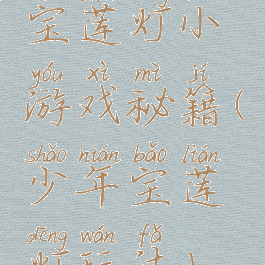 宝莲灯小
yóu xì mì jí
游戏秘籍(
shǎo nián bǎo lián
少年宝莲
dēng wán fǎ
灯玩法)